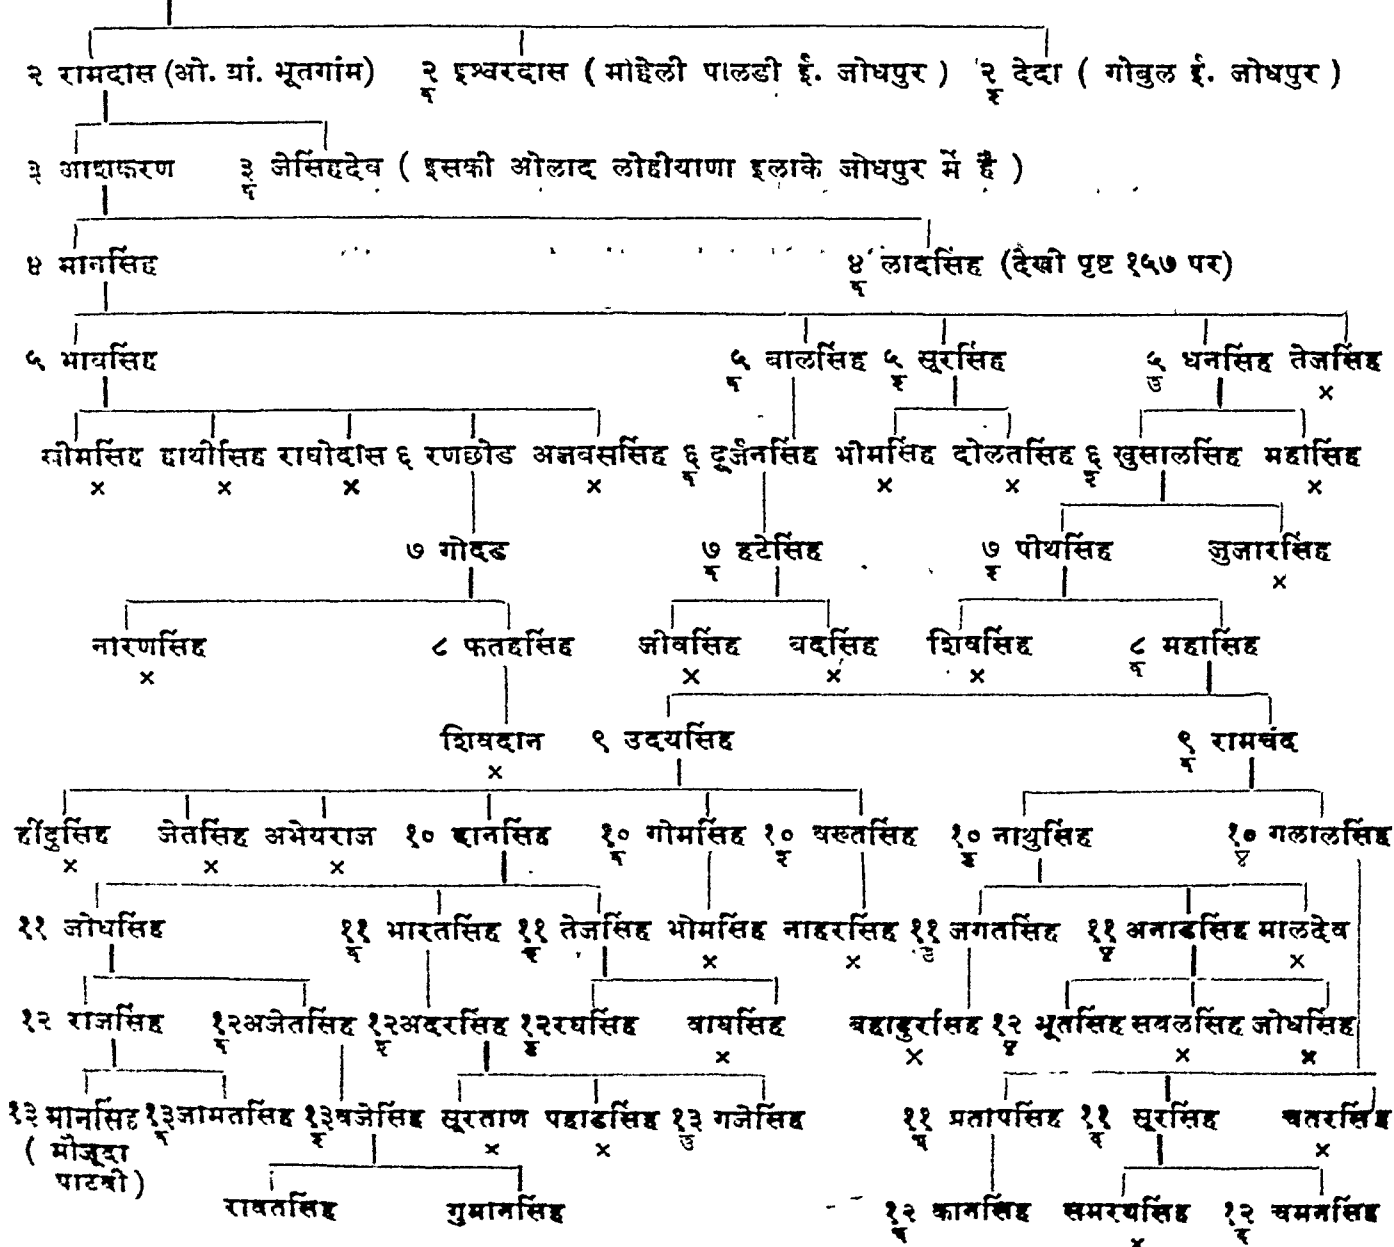 २ रामदास (ओ. ग्रां. भूतगांम) २ इश्वरदास ( मांहेली पालडी ई. जोधपुर ) २ देदा ( गोबुल ई. जोधपुर )
३ आशकरण ३ जेसिंहदेव ( इसकी ओलाद लोहीयाणा इलाके जोधपुर में है )
४ मानसिंह ४ लादसिंह (देखो पृष्ट १५७ पर)
५ भावसिंह ५ वालसिंह ५ सूरसिंह ५ धनसिंह तेजसिंह
×
खीमसिंह हाथीसिंह राघोदास ६ रणछोड अजबसिंह ६ दूर्जनसिंह भीमसिंह दोलतसिंह ६ खुसालसिंह महासिंह
× × × × × × ×
७ गोदड ७ हटेसिंह ७ पोथसिंह जुजारसिंह
×
नारणसिंह ८ फतहसिंह जीवसिंह बदसिंह शिवसिंह ८ महासिंह
× × × ×
शिवदान ९ उदयसिंह ९ रामचंद
×
हींदुसिंह जेतसिंह अभेयराज १० दानसिंह १० गोमसिंह १० वख्तसिंह १० नाथुसिंह १० गलालसिंह
× × ×
११ जोधसिंह ११ भारतसिंह ११ तेजसिंह भोमसिंह नाहरसिंह ११ जगतसिंह ११ अनाडसिंह मालदेव
× × ×
१२ राजसिंह १२ अजेतसिंह १२ अदरसिंह १२ रघसिंह वाघसिंह बहादुरसिंह १२ भूतसिंह सबलसिंह जोधसिंह
× × × ×
१३ मानसिंह १३ जामतसिंह १३ वजेसिंह सूरताण पहाडसिंह १३ गजेसिंह ११ प्रतापसिंह ११ सूरसिंह चतरसिंह
( मौजूदा × × ×
पाटवी )
रावतसिंह गुमानसिंह १२ कानसिंह समरथसिंह १२ चमनसिंह
×